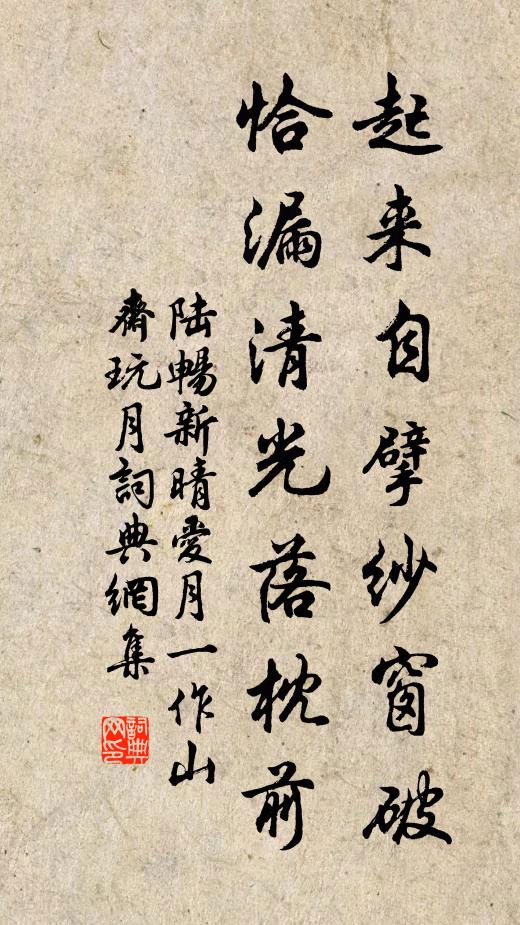 起来自擘纱窗破
恰漏清光落枕前
陆畅新晴爱月一作山
斋玩月词典网集
词典网印